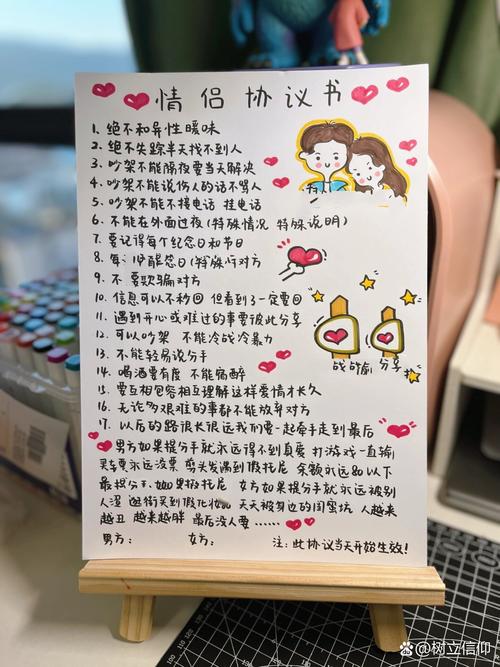 情侣协议书
1. 绝不和异性暧昧
2. 绝不失踪半天找不到人
3. 吵架不能隔夜要当天解决
4. 吵架不能说伤人的话不骂人
5. 吵架不能不接电话 挂电话
6. 不能在外面过夜(特殊情况 特殊说明)
7. 要记得每个纪念日和节日
8. 每 对方
9. 不要欺骗对方
10. 信息可以不秒回 但看到了一定要回
11. 遇到开心或难过的事要彼此分享
12. 可以吵架 不能冷战冷暴力
13. 不能轻易说分手
14. 喝酒要有度 不能宿醉
15. 要互相包容相互理解这样爱情才长久
16. 无论多艰难的事都不能放弃对方
17. 以后的路很长很远我们要一起牵手走到最后
男方如果提分手就永远得不到真爱 打游戏一直输
买车票永远没票 剪头发遇到假托尼 余额永远80以下
最 女方如果提分手就永远被别
人渣 逛街买到假化妆品 天天被身边的闺蜜坑 人越来
越丑 越来越胖 最后没人要……
男方: 女方: 注:此协议当天开始生效!
分享
@树立信仰